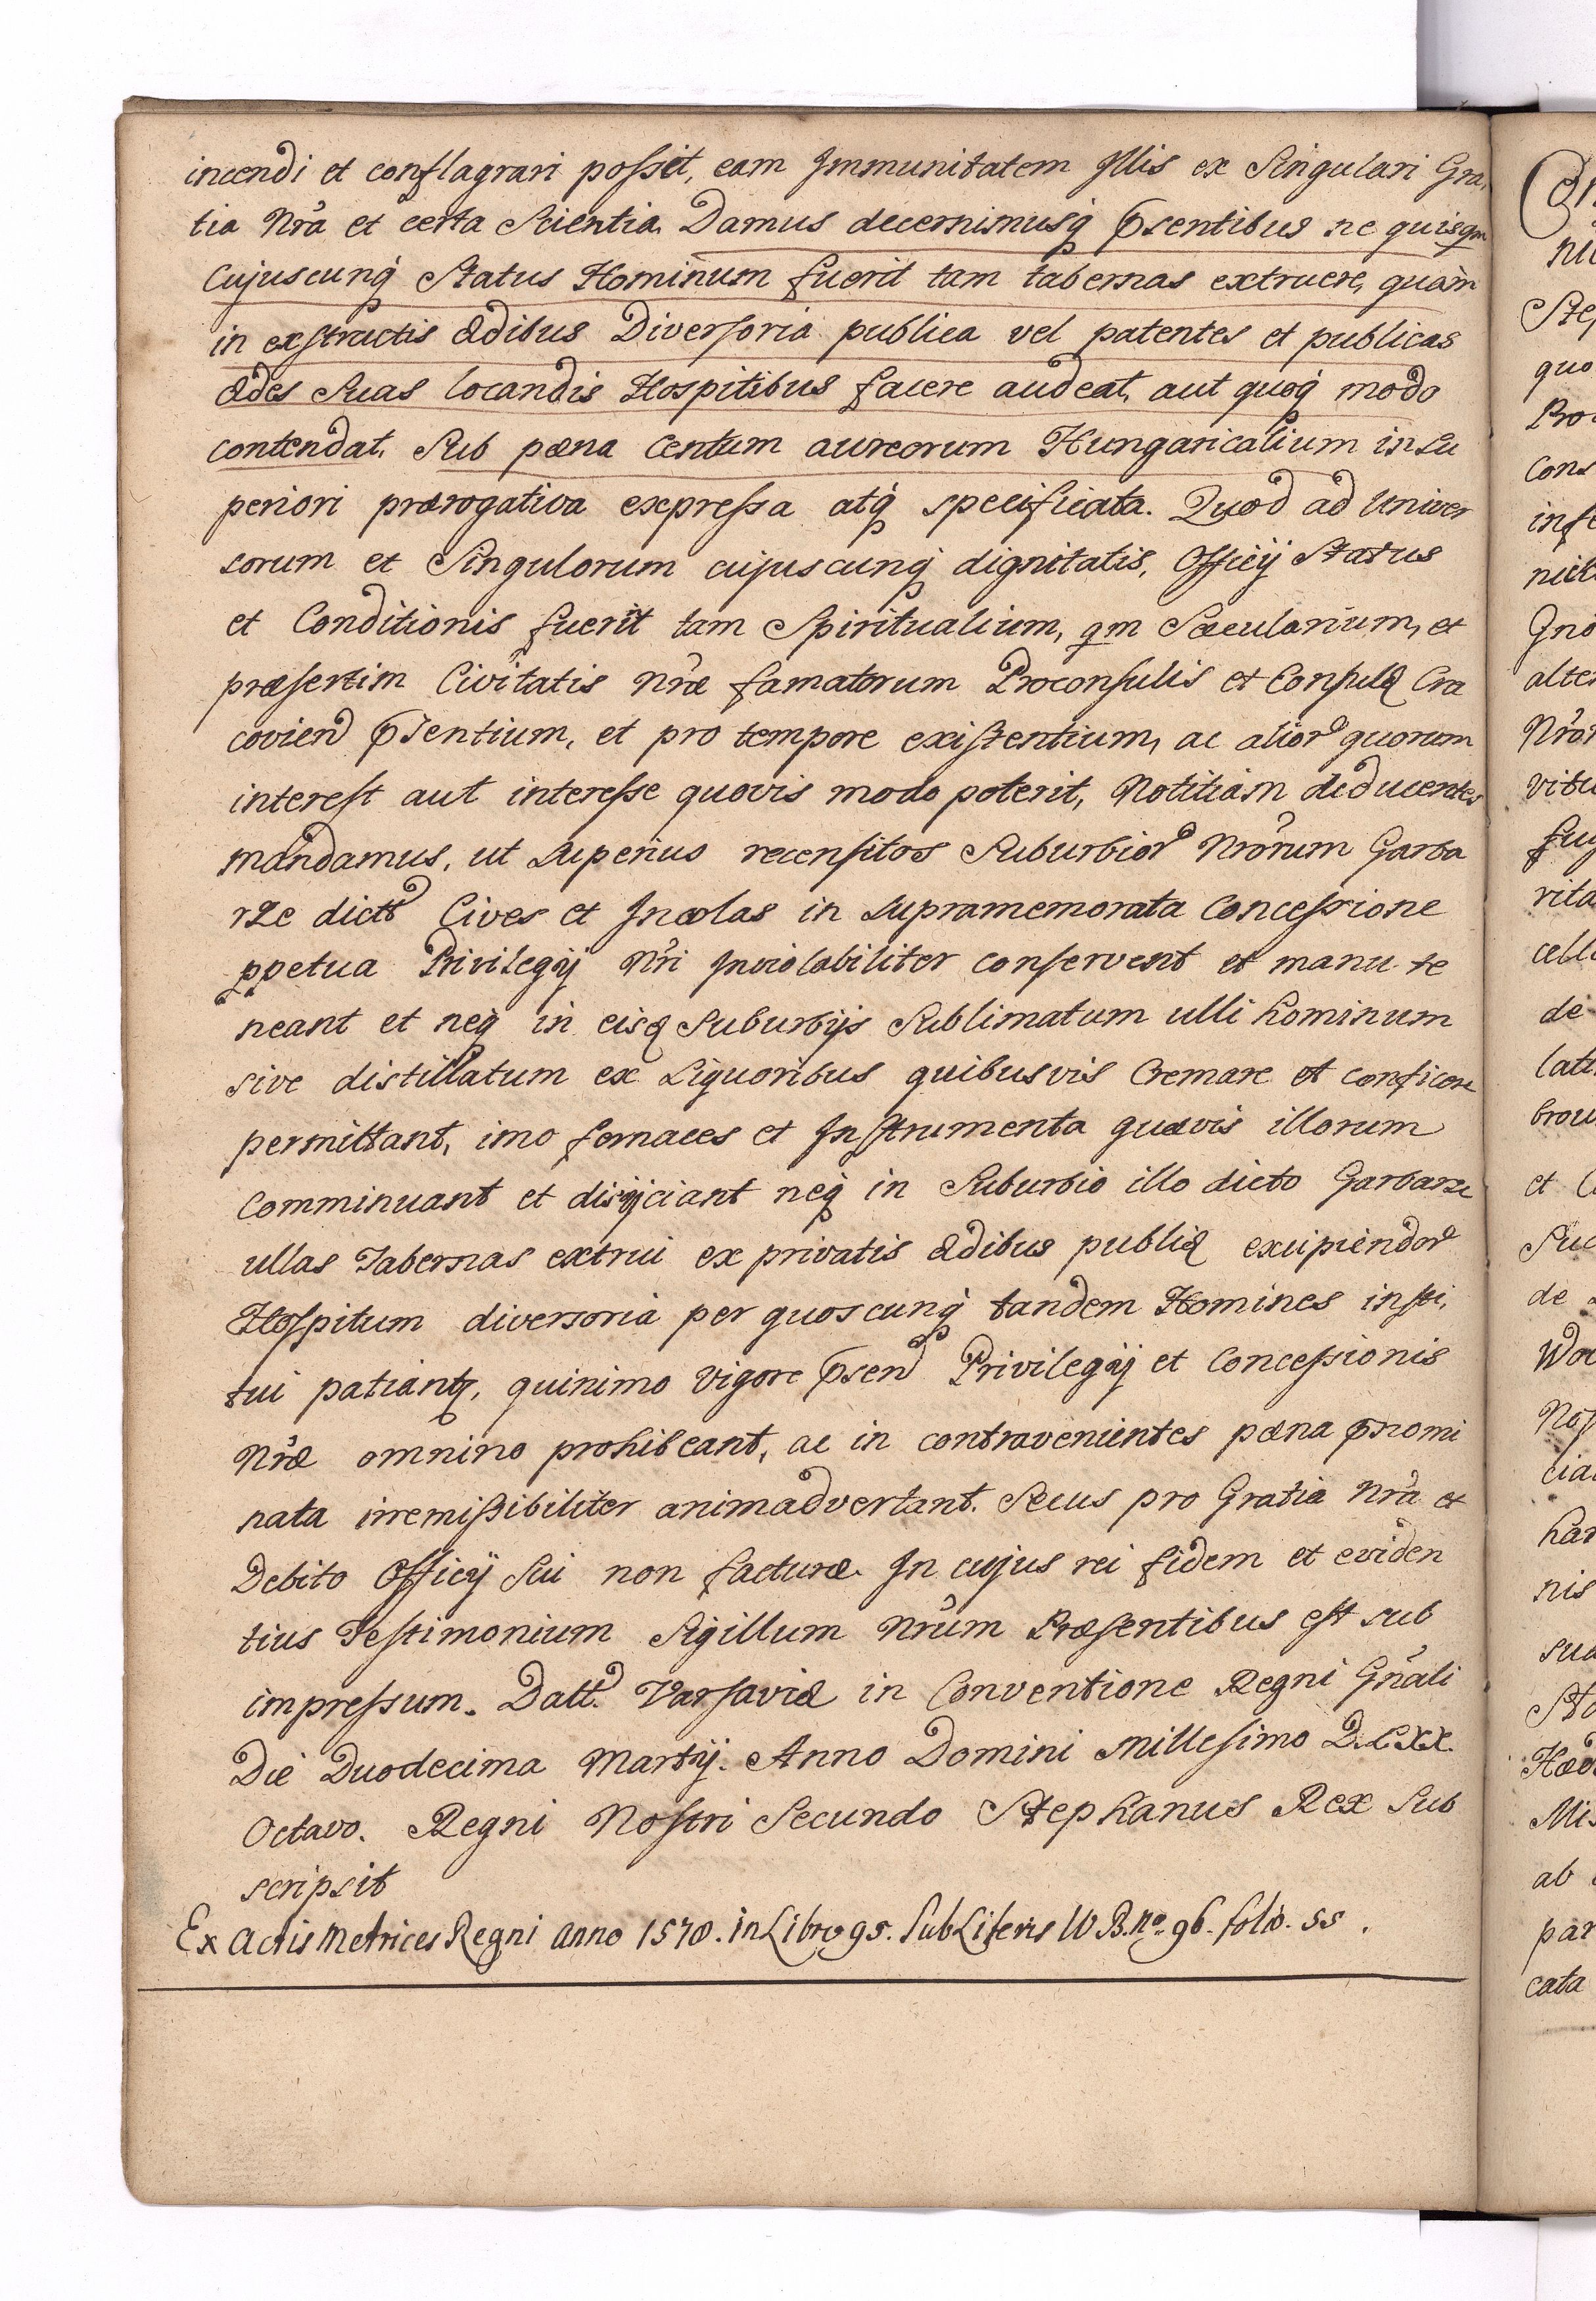 incendi et conflagrari possit, eam Immunitatem Illis ex Singulari Gra,
tia Nrã et certa Scientia. Damus decernimusq́ pñsentibus ne quisqm
cujuscunq́ Status Hominum fuerit tam tabernas extruere, quàm
in exstructis ædibus Diversoria publica vel patentes et publicas
ædes Suas locandis Hospitibus facere audeat, aut quoq́ modo
contendat. Sub pœna Centum aureorum Hungaricalium in su
periori prærogativa expressa atq́ specificata. Quod ad Univer
sorum et Singulorum cujuscunq́ dignitatis, Officÿ Status
et Conditionis fuerit tam Spiritualium, qm Sæcularium, et
præsertim Civitatis Nræ̃ famatorum Proconsulis et Consulū Cra
covien pñsentium, et pro tempore existentium, ac alior quorum
interest aut interesse quovis modo poterit, Notitiam deducentes
mandamus, ut superius recensitos Suburbior Nrõrum Garba
rze dictt Cives et Incolas in supramemorata Concessione
ppetua Privilegÿ Nrĩ Inviolabiliter conservent et manu te
neant et neq́ in eisd Suburbÿs Sublimatum ulli hominum
sive distillatum ex Liquoribus quibusvis Cremare et conficere
permittant, imo fornaces et Instrumenta quævis illorum
Comminuant et disÿciant neq́ in Suburbio illo dicto Garbarze
ullas Tabernas extrui ex privatis ædibus publica excipiendor
Hospitum diversoria per quoscunq́ tandem Homines insti,
tui patiantr, quinimo vigore pñsen Privilegÿ et Concessionis
Nræ̃ omnino prohibeant, ac in contravenientes pœna pñnomi
nata irremissibiliter animadvertant. Secus pro Gratia Nrã et
Debito Officÿ Sui non facturæ. In cujus rei fidem et eviden
tius Testimonium Sigillum Nrũm Præsentibus est sub
impressum. Datt. Varsaviæ in Conventione Regni Gnãli
Die Duodecima Martÿ. Anno Domini Millesimo D.LXX.
Octavo. Regni Nostri Secundo Stephanus Rex Sub
scripsit
Ex Actis Metrices Regni anno 1578. in Libro 95. Sub Literis W B. No. 96. folio. 55.